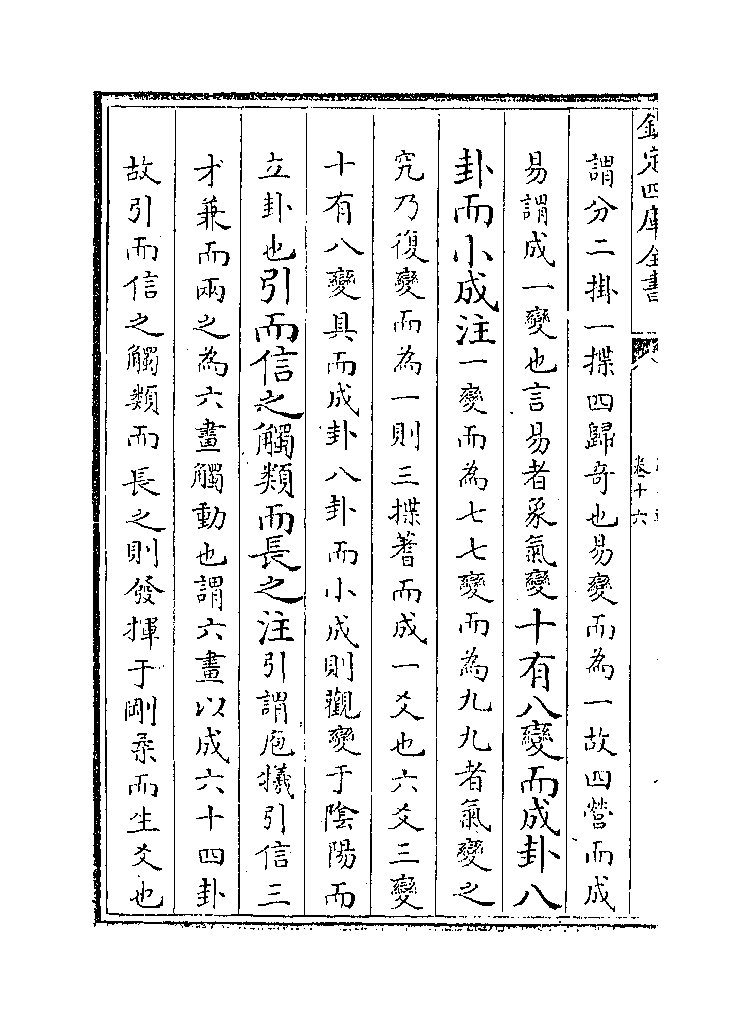 欽定四庫全書
卷十六
謂分二掛一揲四歸奇也易變而為一故四營而成
易謂成一變也言易者象氣變十有八變而成卦八
卦而小成注一變而為七七變而為九九者氣變之
究乃復變而為一則三揲蓍而成一爻也六爻三變
十有八變具而成卦八卦而小成則觀變于陰陽而
立卦也引而信之觸類而長之注引謂庖犧引信三
才兼而兩之為六畫觸動也謂六畫以成六十四卦
故引而信之觸類而長之則發揮于剛柔而生爻也